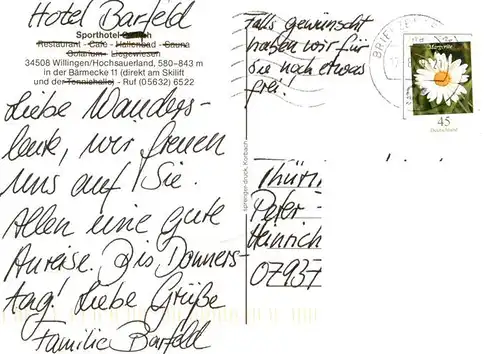 Hotel Barfeld
Sporthotel
Restaurant - Café - Hallenbad - Sauna
Solarium - Liegewiesen
34508 Willingen/Hochsauerland, 580–843 m
in der Bärmecke 11 (direkt am Skilift
und der Tennishalle) - Ruf (05632) 6522
Liebe Wanders-
leute, wir freuen
uns auf Sie.
Allen eine gute
Anreise. Bis Donners-
tag! Liebe Grüße
Familie Barfeld
Falls gewünscht
haben wir für
Sie noch etwas
frei!
sprenger-druck, Korbach
BRIEFZE
Margerite
45
Deutschland
Thüri
Peter-
Heinrich
07937